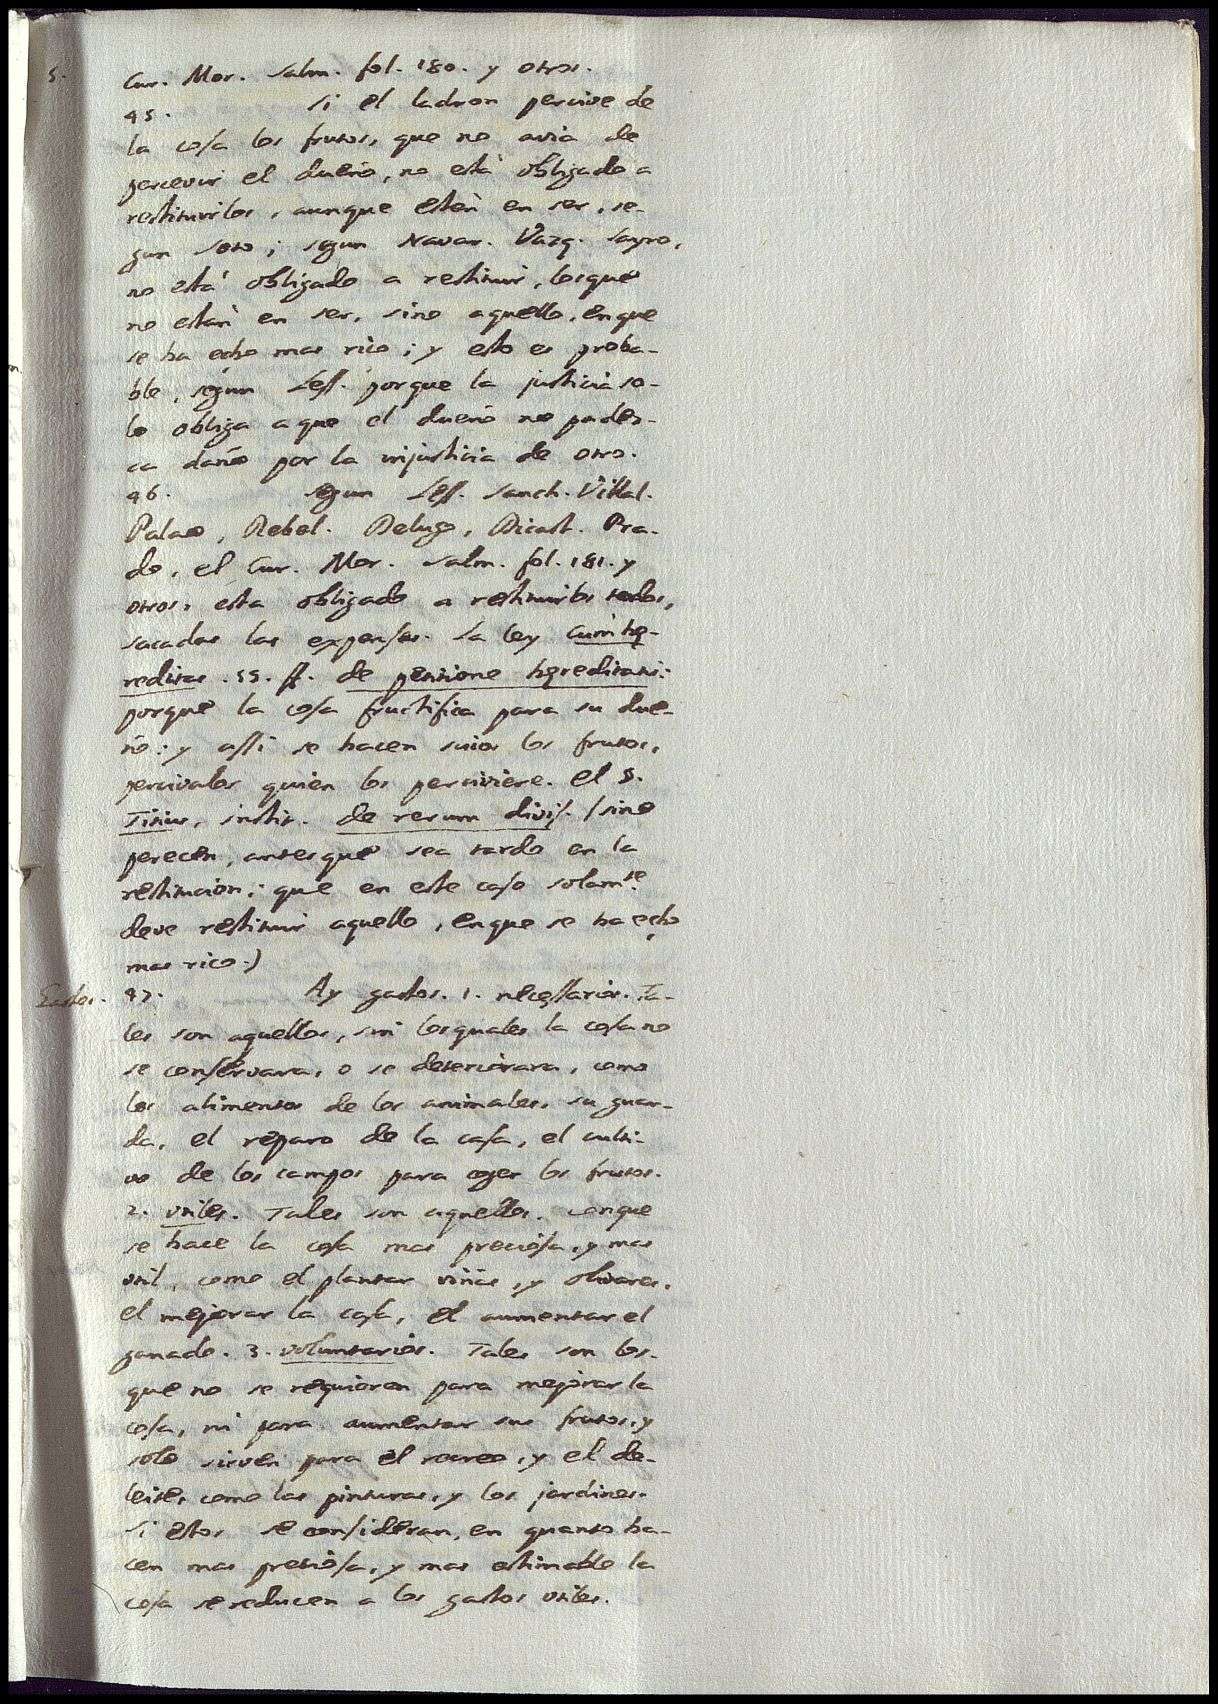 s.
Cur. Mor. Salm. fol. 180. y otros.
45. Si el ladron percive de
la cosa los frutos, que no avia de
percevir el dueño, no està obligado a
restituirlos, aunque esten en ser, se-
gun Soto; segun Navar. Vazq. Sayro,
no està obligado a restituir, los que
no estan en ser, sino aquello, en que
se ha echo mas rico; y esto es proba-
ble, segun Less. porque la justicia so-
lo obliga a que el dueño no pades-
ca daño por la injusticia de otro.
46. segun Less. Sanch. Villal.
Palao, Rebel. Delugo, Dicast. Pra-
do, el Cur. Mor. Salm. fol. 181. y
otros, esta obligado a restituirlos todos,
sacadas las expensas. La ley Cum hę-
reditas. 55. ff. de petitione hęreditatis:
porque la cosa fructifica para su due-
ño: y assi se hacen suios los frutos,
percivalos quien los perciviere. el §.
Titius, instit. de rerum divis. (sino
perecen, antes que sea tardo en la
restitucion; que en este caso solamte.
deve restituir aquello, en que se ha echo
mas rico.)
Gastos. 47. Ay gastos. 1. necessarios. Ta-
les son aquellos, sin los quales la cosa no
se conservara, o se deteriorara, como
los alimentos de los animales, su guar-
da, el reparo de la casa, el culti-
vo de los campos para coger los frutos.
2. utiles. Tales son aquellos, con que
se hace la cosa mas preciosa, y mas
util, como el plantar viñas, y olivares,
el mejorar la casa, el aumentar el
ganado. 3. voluntarios. Tales son los-
que no se requieren para mejorar la
cosa, ni para aumentar sus frutos, y
solo sirven para el recreo, y el de-
leite, como las pinturas, y los jardines.
Si estos se consideran, en quanto ha-
cen mas preciosa, y mas estimable la
cosa se reducen a los gastos utiles.